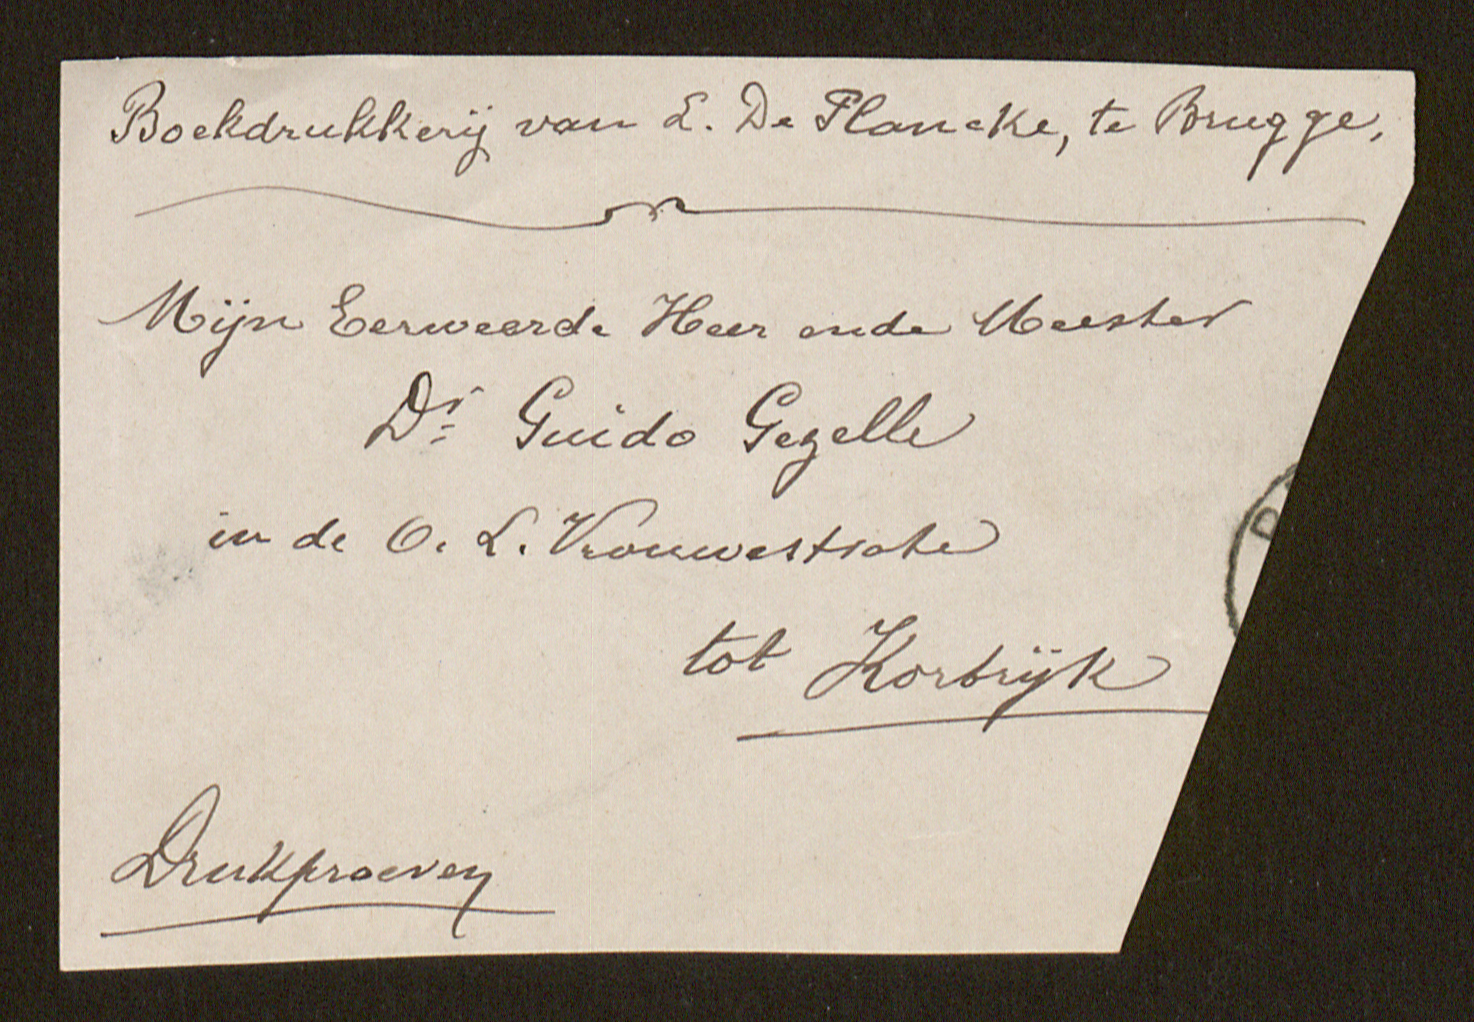 Boekdrukkerij van L. De Plancke, te Brugge.
Mijn Eerweerde Heer ende Meester
Dr Guido Gezelle
in de O. L. Vrouwestrate
tot Kortrijk
Drukproeven